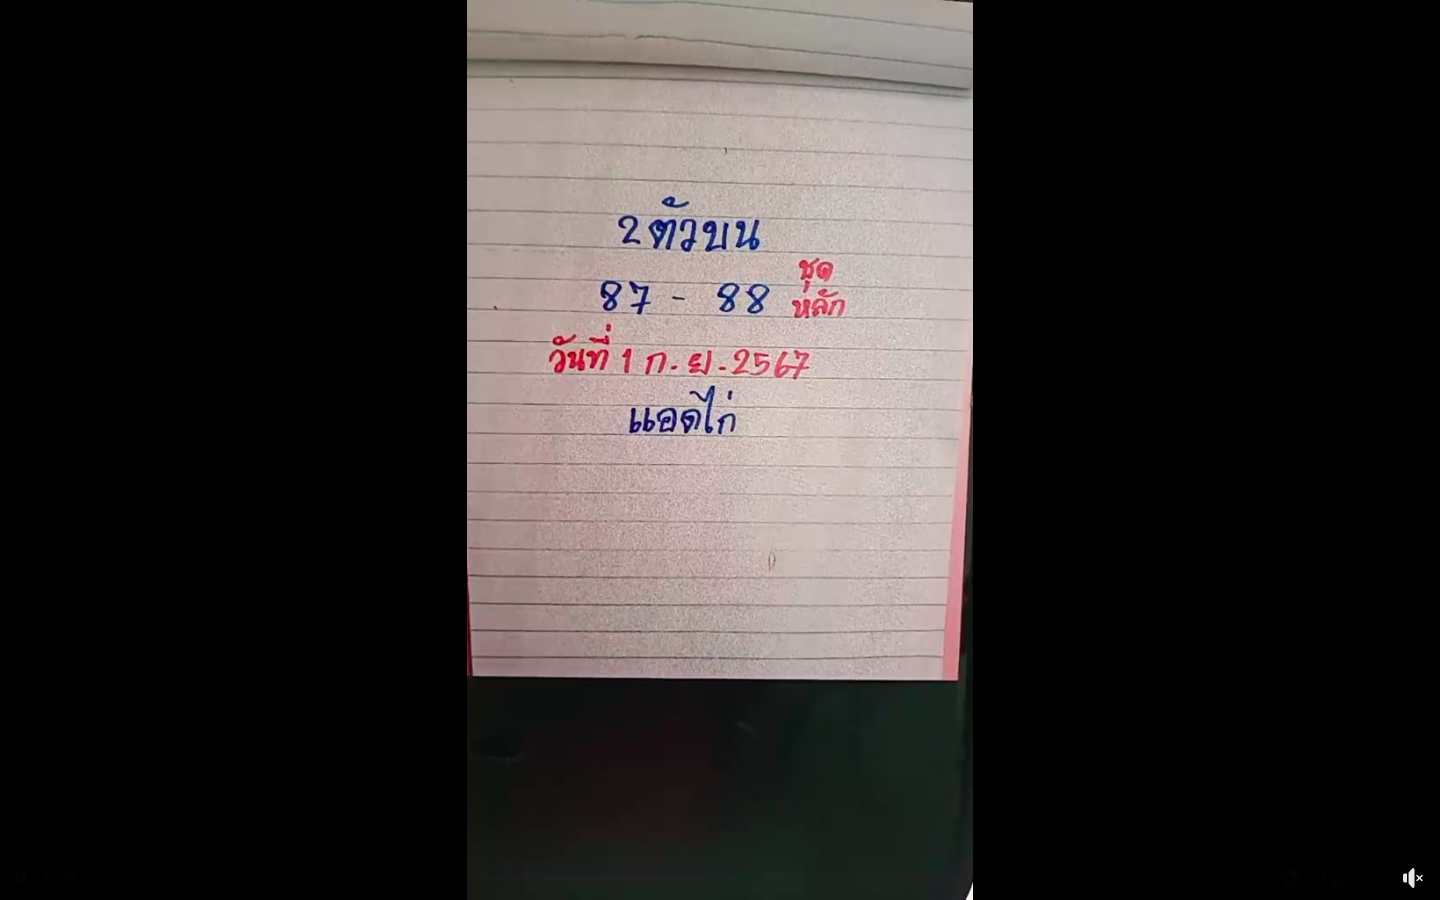 2ตัวบน
87 - 88 ชุดหลัก
วันที่ 1 ก.ย.2567
แอดไก่